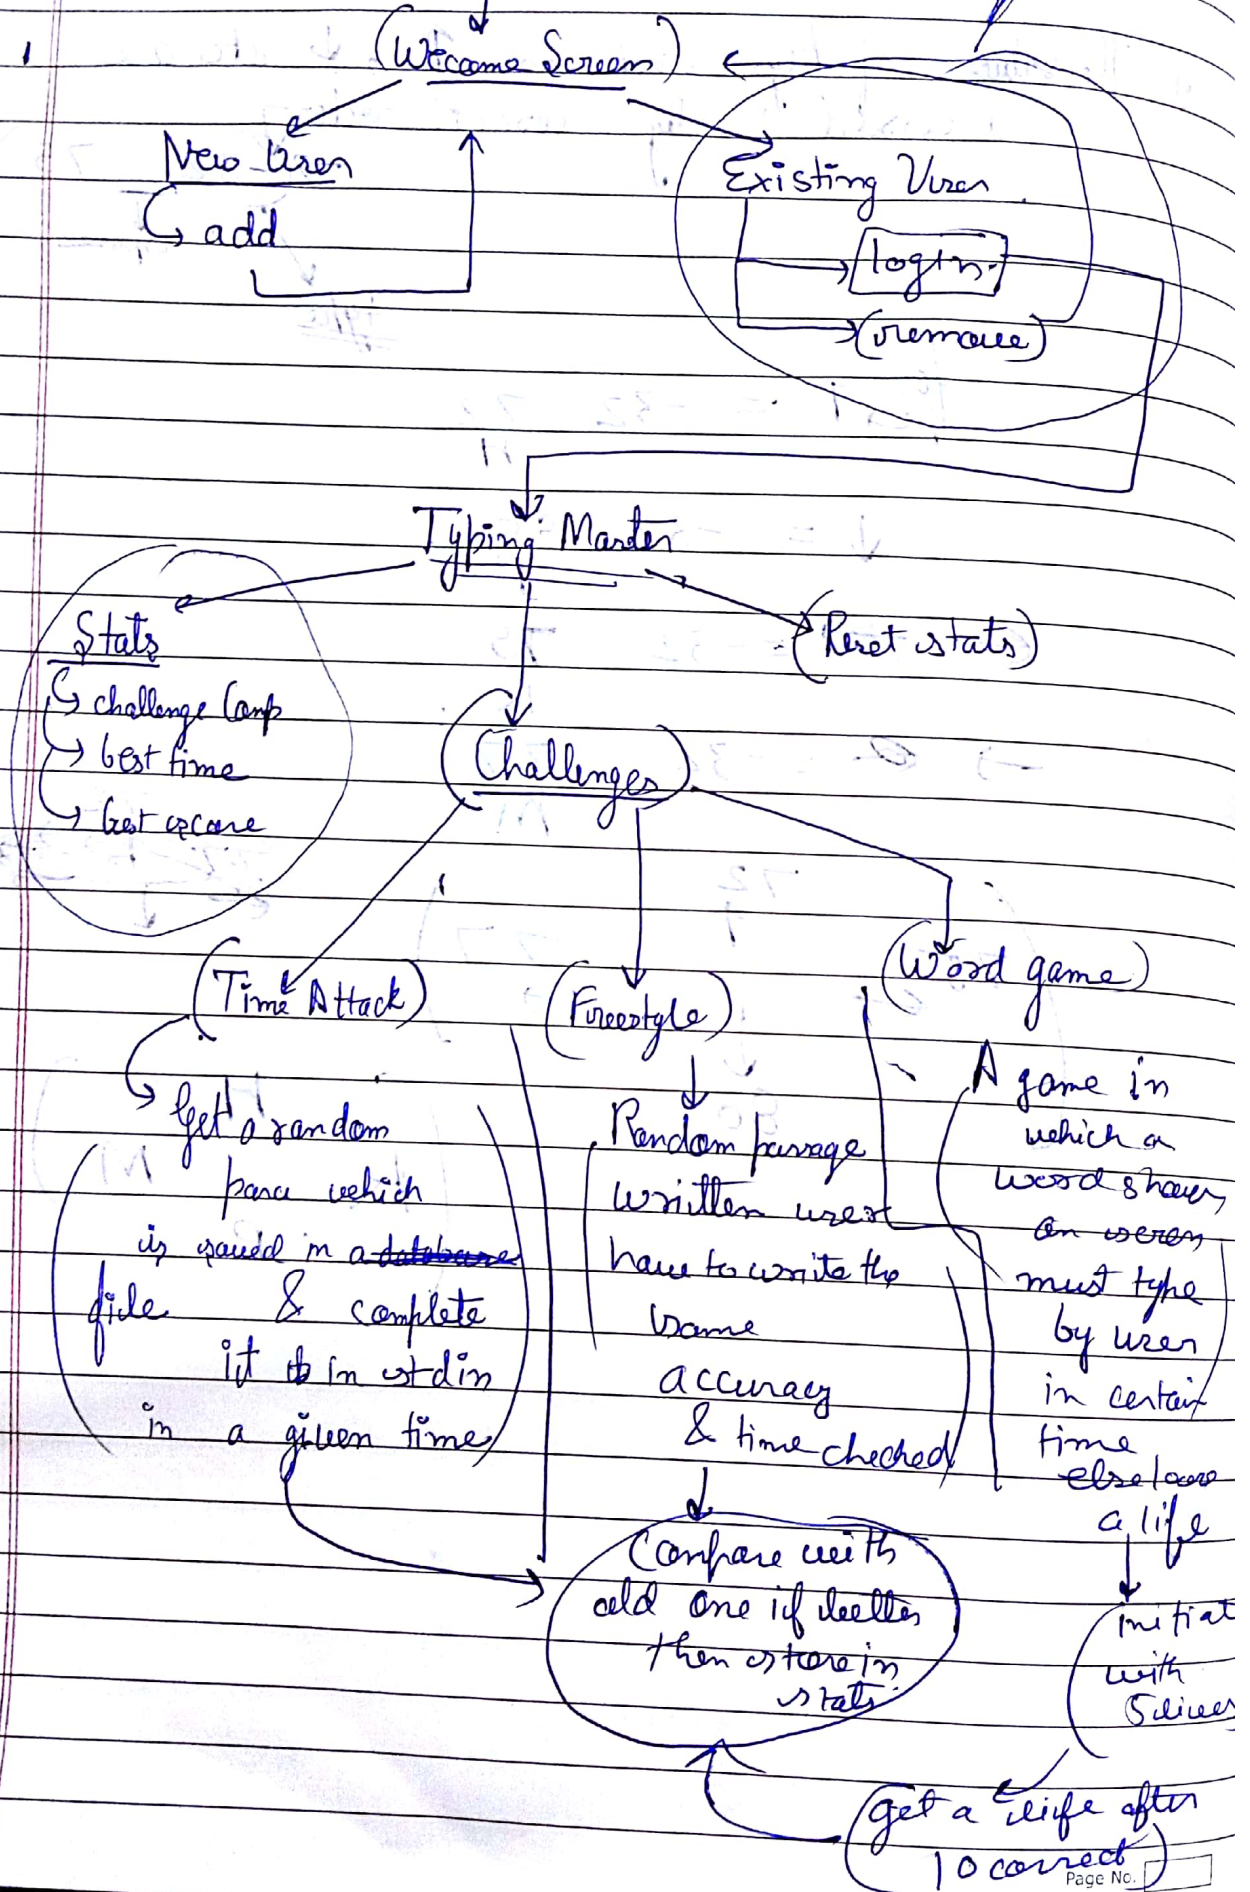 (Wecome Screen)
New User
add
Existing User
login
(remove)
Typing Master
Stats
challenge Comp
best time
best score
(Reset stats)
Challenges
(Time Attack)
(Freestyle)
(Word game)
Get a random
para which
is saved in a database
file & complete
it in stdin
in a given time
Random passage
written user
have to write the
same
accuracy
& time checked
A game in
which a
word shows,
an users
must type
by user
in certain
time
else loose
a life
initiat
with
5 lives
get a life after
10 correct
Compare with
old one if better
then store in
stats
Page No.